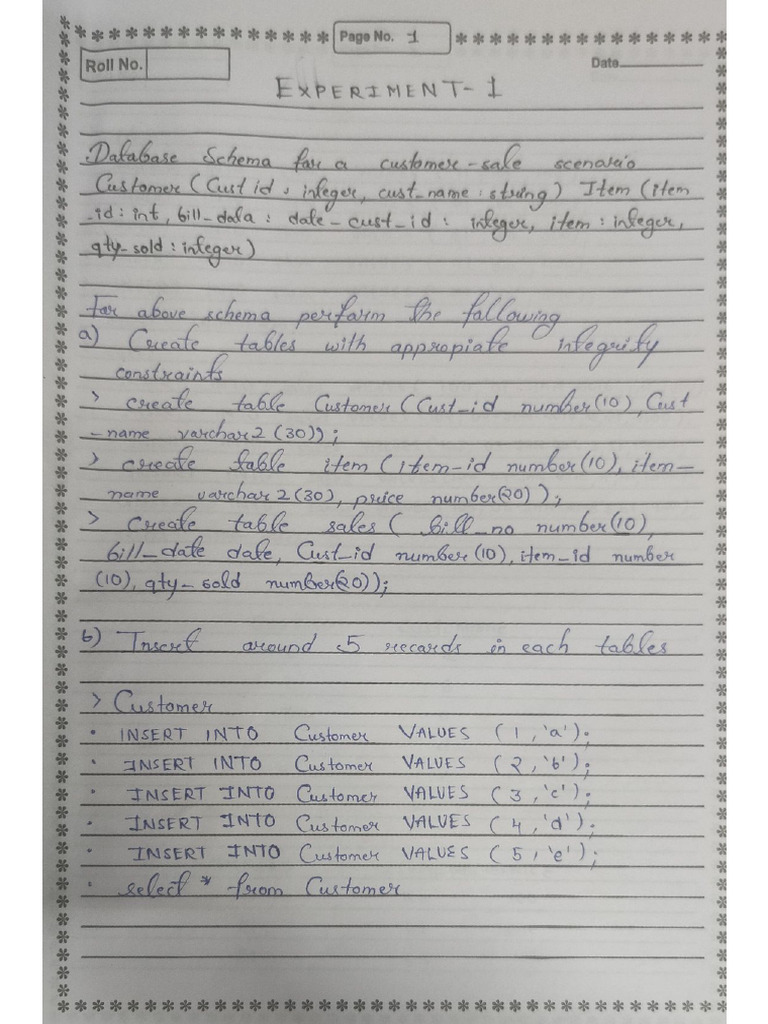 Page No. 1
Roll No.
Date
EXPERIMENT-1
Database Schema for a customer-sale scenario
Customer (Cust id : integer, cust_name : string) Item (item
_id : int, bill_data : date - cust_id : integer, item : integer,
qty-sold : integer)
For above schema perform the following
a) Create tables with appropiate integrity
constraints
> create table Customer (Cust_id number(10), Cust
-name varchar2 (30));
> create table item (item-id number(10), item-
name varchar2(30), price number(20));
> Create table sales ( bill_no number(10),
bill_date date, Cust_id number(10), item_id number
(10), qty-sold number(20));
b) Insert around 5 records in each tables
> Customer
• INSERT INTO Customer VALUES (1,'a');
• INSERT INTO Customer VALUES (2,'b');
• INSERT INTO Customer VALUES (3,'c');
• INSERT INTO Customer VALUES (4,'d');
• INSERT INTO Customer VALUES (5,'e');
• select * from Customer